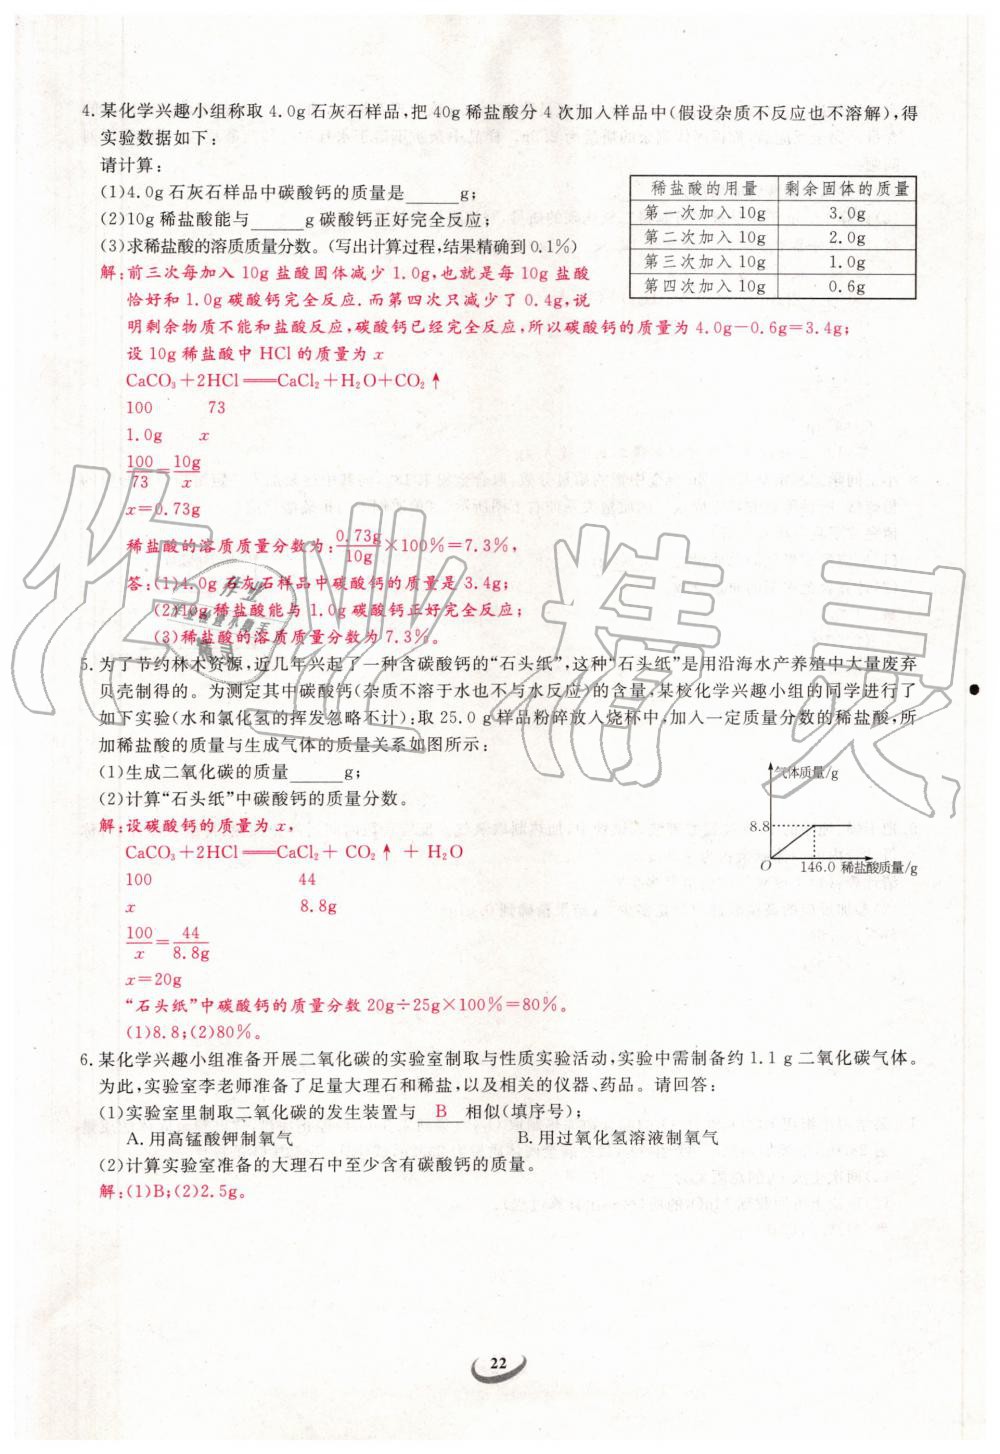 4.某化学兴趣小组称取4.0g石灰石样品,把40g稀盐酸分4次加入样品中(假设杂质不反应也不溶解),得
实验数据如下:
请计算:
(1)4.0g石灰石样品中碳酸钙的质量是______g;
(2)10g稀盐酸能与______g碳酸钙正好完全反应;
(3)求稀盐酸的溶质质量分数。(写出计算过程,结果精确到0.1%)
稀盐酸的用量 剩余固体的质量
第一次加入10g 3.0g
第二次加入10g 2.0g
第三次加入10g 1.0g
第四次加入10g 0.6g
解:前三次每加入10g盐酸固体减少1.0g,也就是每10g盐酸
恰好和1.0g碳酸钙完全反应.而第四次只减少了0.4g,说
明剩余物质不能和盐酸反应,碳酸钙已经完全反应,所以碳酸钙的质量为4.0g-0.6g=3.4g;
设10g稀盐酸中HCl的质量为x
CaCO₃+2HCl══CaCl₂+H₂O+CO₂↑
100 73
1.0g x
100/73=10g/x
x=0.73g
稀盐酸的溶质质量分数为:0.73g/10g×100%=7.3%,
答:(1)4.0g石灰石样品中碳酸钙的质量是3.4g;
(2)10g稀盐酸能与1.0g碳酸钙正好完全反应;
(3)稀盐酸的溶质质量分数为7.3%。
5.为了节约林木资源,近几年兴起了一种含碳酸钙的“石头纸”,这种“石头纸”是用沿海水产养殖中大量废弃
贝壳制得的。为测定其中碳酸钙(杂质不溶于水也不与水反应)的含量,某校化学兴趣小组的同学进行了
如下实验(水和氯化氢的挥发忽略不计):取25.0g样品粉碎放入烧杯中,加入一定质量分数的稀盐酸,所
加稀盐酸的质量与生成气体的质量关系如图所示:
(1)生成二氧化碳的质量______g;
(2)计算“石头纸”中碳酸钙的质量分数。
气体质量/g
8.8
O 146.0 稀盐酸质量/g
解:设碳酸钙的质量为x,
CaCO₃+2HCl══CaCl₂+CO₂↑+H₂O
100 44
x 8.8g
100/x=44/8.8g
x=20g
“石头纸”中碳酸钙的质量分数20g÷25g×100%=80%。
(1)8.8;(2)80%。
6.某化学兴趣小组准备开展二氧化碳的实验室制取与性质实验活动,实验中需制备约1.1g二氧化碳气体。
为此,实验室李老师准备了足量大理石和稀盐,以及相关的仪器、药品。请回答:
(1)实验室里制取二氧化碳的发生装置与 B 相似(填序号);
A.用高锰酸钾制氧气 B.用过氧化氢溶液制氧气
(2)计算实验室准备的大理石中至少含有碳酸钙的质量。
解:(1)B;(2)2.5g。
作业精灵
22